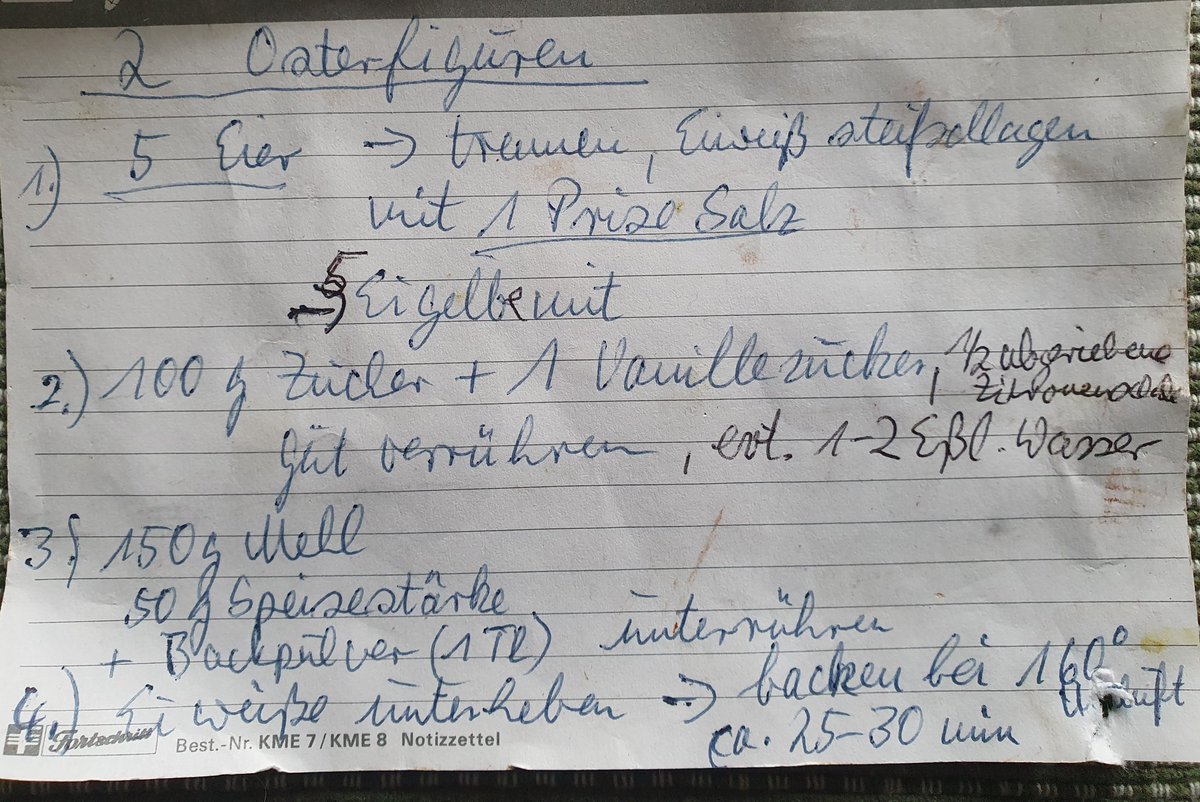 2 Osterfiguren
1.) 5 Eier → trennen, Eiweiß steifschlagen
mit 1 Prise Salz
5 Eigelbe mit
2.) 100 g Zucker + 1 Vanillezucker, 1/2 abgeriebene
Zitronenschale
gut verrühren, evt. 1-2 Eßl. Wasser
3.) 150 g Mehl
50 g Speisestärke
+ Backpulver (1 Tl) unterrühren
4.) Eiweiße unterheben → backen bei 160°
Umluft
ca. 25-30 min
Fortschritt Best.-Nr. KME 7/KME 8 Notizzettel